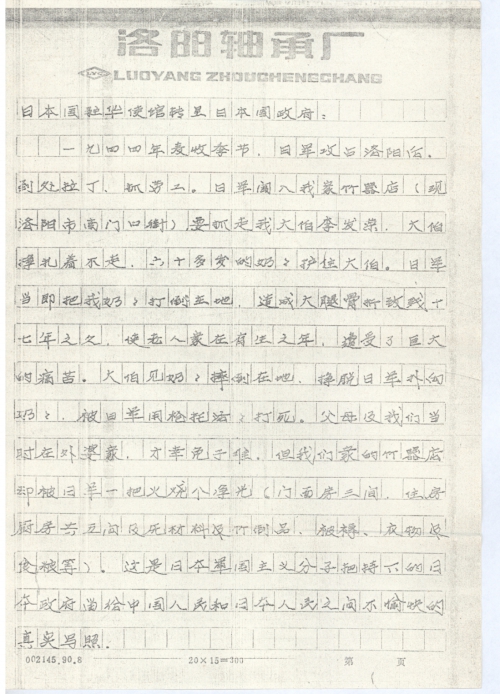 洛阳轴承厂
LUOYANG ZHOUCHENGCHANG
日本国驻华使馆转呈日本国政府：
一九四四年麦收季节，日军攻占洛阳后，
到处拉丁，抓劳工。日军闯入我家竹器店（现
洛阳市南门口街），要抓走我大伯李发荣，大伯
挣扎着不走，六十多岁的奶々护住大伯。日军
当即把我奶々打倒在地，造成大腿骨折致残十
七年之久，使老人家在有生之年，遭受了巨大
的痛苦。大伯见奶々摔倒在地，挣脱日军扑向
奶々，被日军用枪托活々打死。父母及我们当
时在外婆家，才幸免于难。但我们家的竹器店
却被日军一把火烧个净光（门面房三间，住房
厨房共五间及死材料及竹制品，被褥、衣物及
等）。这是日本军国主义分子把持下的日
本政府留给中国人民和日本人民之间不愉快的
真实写照。
002145.90.8 20×15=300 第 页